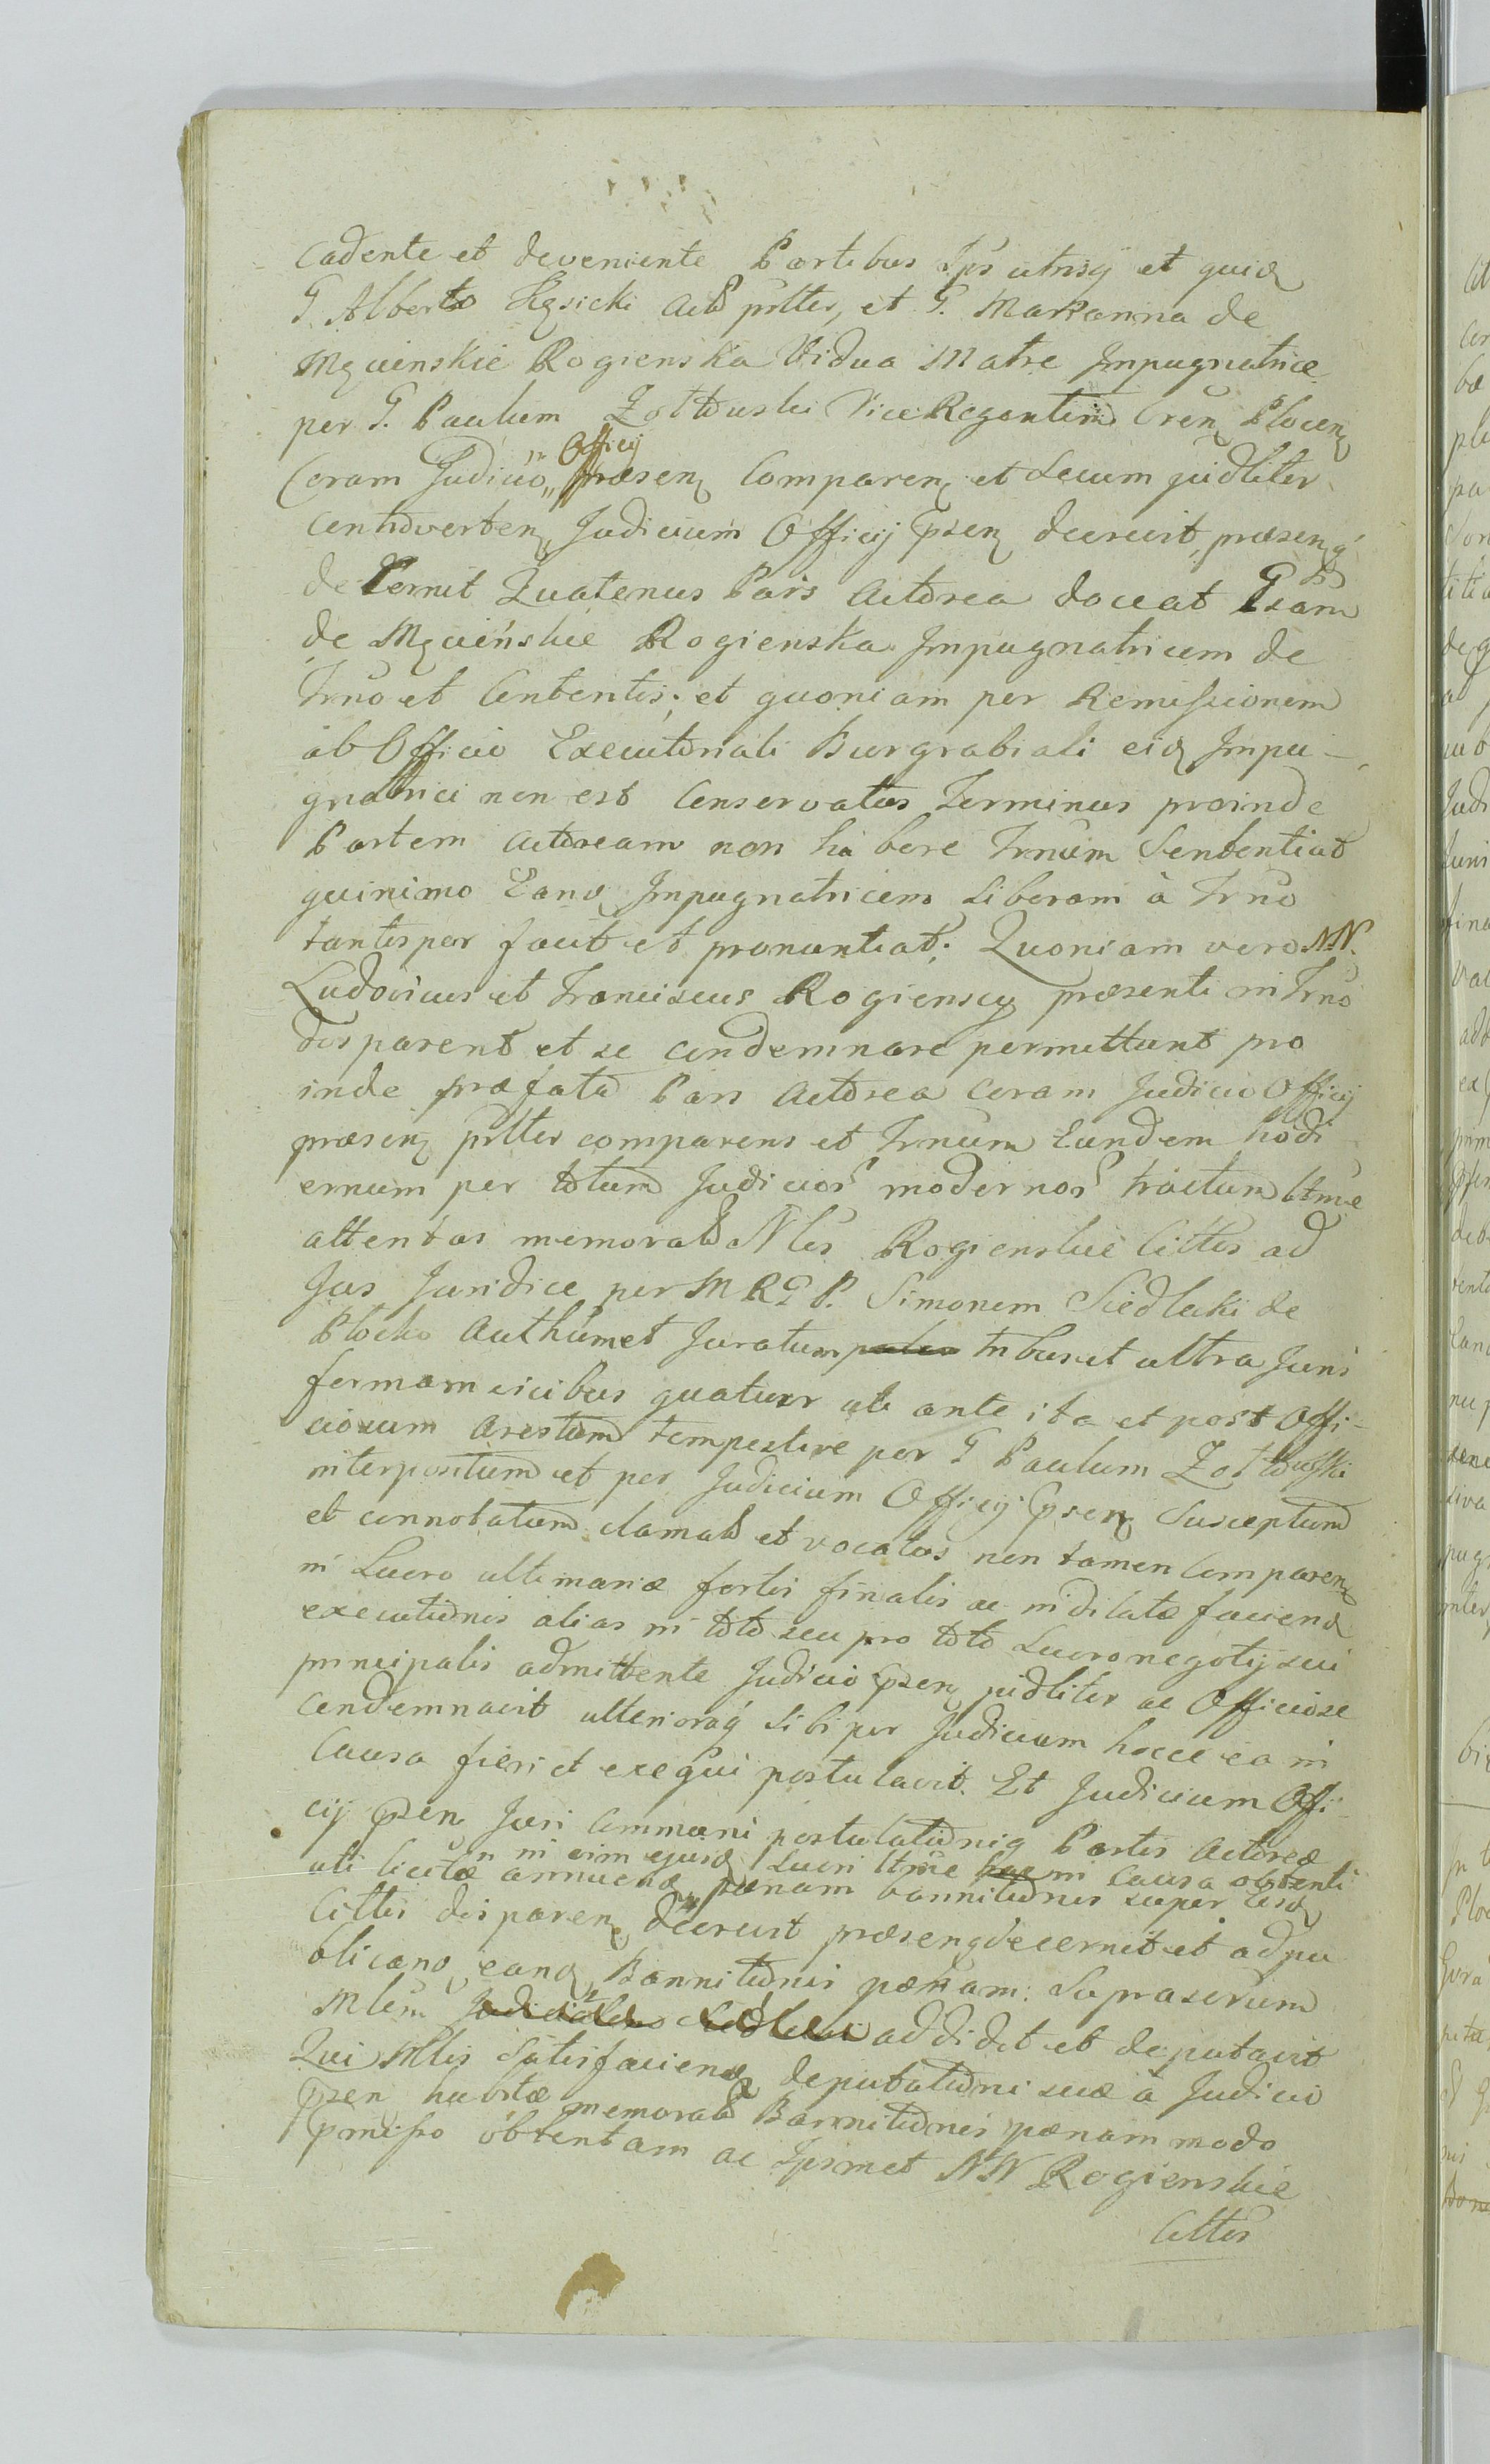 Cadente et deveniente Partibus Ips utrisq et quid
G. Alberto Kęsicki Actt psltter, et G. Marianna de
Mąciński Rogienska Vidua Matre Impugnatrice
per G. Paulum Zołtowski Vice Regentem Cren Plocen
Coram Judicio „ Officij præsen Comparen et Secum judliter
Controverten, Judicium Officij Præsen decrevit, præsenq
decernit Quatenus Pars Actorea doceat Gsam
de Mącińskie Rogienska Impugnatricem de
Trno et Contentis; et quoniam per Remissionem
ab Officio Executoriali Burgrabiali eid Impu-
gnatrici non est Conservatus Terminus proinde
Partem Actoream non habere Trnum Sententiat
quinimo Eand Impugnatricem liberam à Trno
tantisper facit et pronuntiat; Quoniam vero NN.
Ludovicus et Franciscus Rogienscy præsenti in Trno
disparent et se condemnare permittunt pro
inde præfata Pars Actorea Coram Judicio Officij
præsen psltter comparens et Trnum Eundem hodi
ernum per totum Judicior modernor tractum ltme
attentas memorat Nles Rogienskie Cittos ad
Jus Juridice per M R G P. Simonem Siedlecki de
Plocko Authumet Juratum tribus et ultra Juris
formam vicibus quatuor uti ante ita et post Offi-
ciosum Arestum tempestive per G Paulum Zołtowski
interpositum et per Judicium Officij Præsen Susceptum
et connotatum clamat et vocatos non tamen Comparen
in Lucro ultimariæ fortis finalis ac indilatæ faciend
executionis alias in toto seu pro toto Lucro negotij sui
principalis admittente Judicio Præsen judliter ac Officiose
Condemnavit ulterioraq sibi per Judicium hocce ea in
Causa fieri et exequi postulavit. Et Judicium Offi
cij Præsen Juri Communi postulationiq Partis Actoreæ
„ in vim ejusd Lucri ltme in Causa obtenti
uti licitæ annuend, pænam bannitionis super eisd
Cittis disparen decrevit præsenq decernit et ad pu
blicand eand Bannitionis pænam. Supraserium
Mlem addidit et deputavit
Qui Mlis Satisfaciend deputationi suæ à Judicio
Præsen habitæ memorat Bannitionis pænam modo
præmisso obtentam ac Ipsmet NN Rogienskie
Cittos